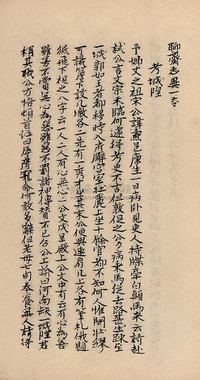 聊齋志異一卷
考城隍
予姊丈之祖宋公諱燾邑廩生一日病臥見吏人持牒牽白顛馬來云請赴
試公言文宗未臨何遽得考吏不言但敦促之公力病乘馬從去路甚生疎至
一城郭如王者都移時入府廨宮室壯麗上坐十餘官都不知何人惟關壯繆
可識簷下設几墩各二先有一秀才坐其末公便與連肩几上各有筆札俄題
紙飛下視之八字云一人二人有心無心二公文成呈殿上公文中有云有心為善
雖善不賞無心為惡雖惡不罰諸神傳贊不已召公上諭曰河南缺一城隍君
稱其職公方悟頓首泣曰辱膺寵命何敢多辭但老母七旬奉養無人請得